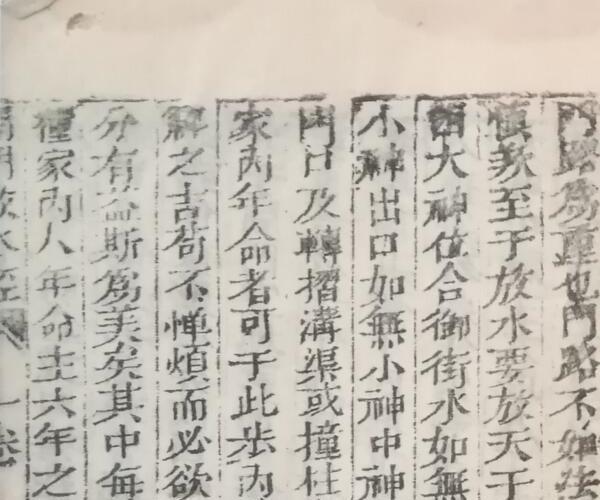 門路爲重也門路不如法
慎哉至于放水要放天干
大神位合御街水如無
小神出口如無小神中神
內口及轉摺溝渠或撞柱
家丙年命者可于此法內
解之吉苟不憚煩而必欲
分有益斯爲美矣其中每
種家丙人年命主六年之
開門放水